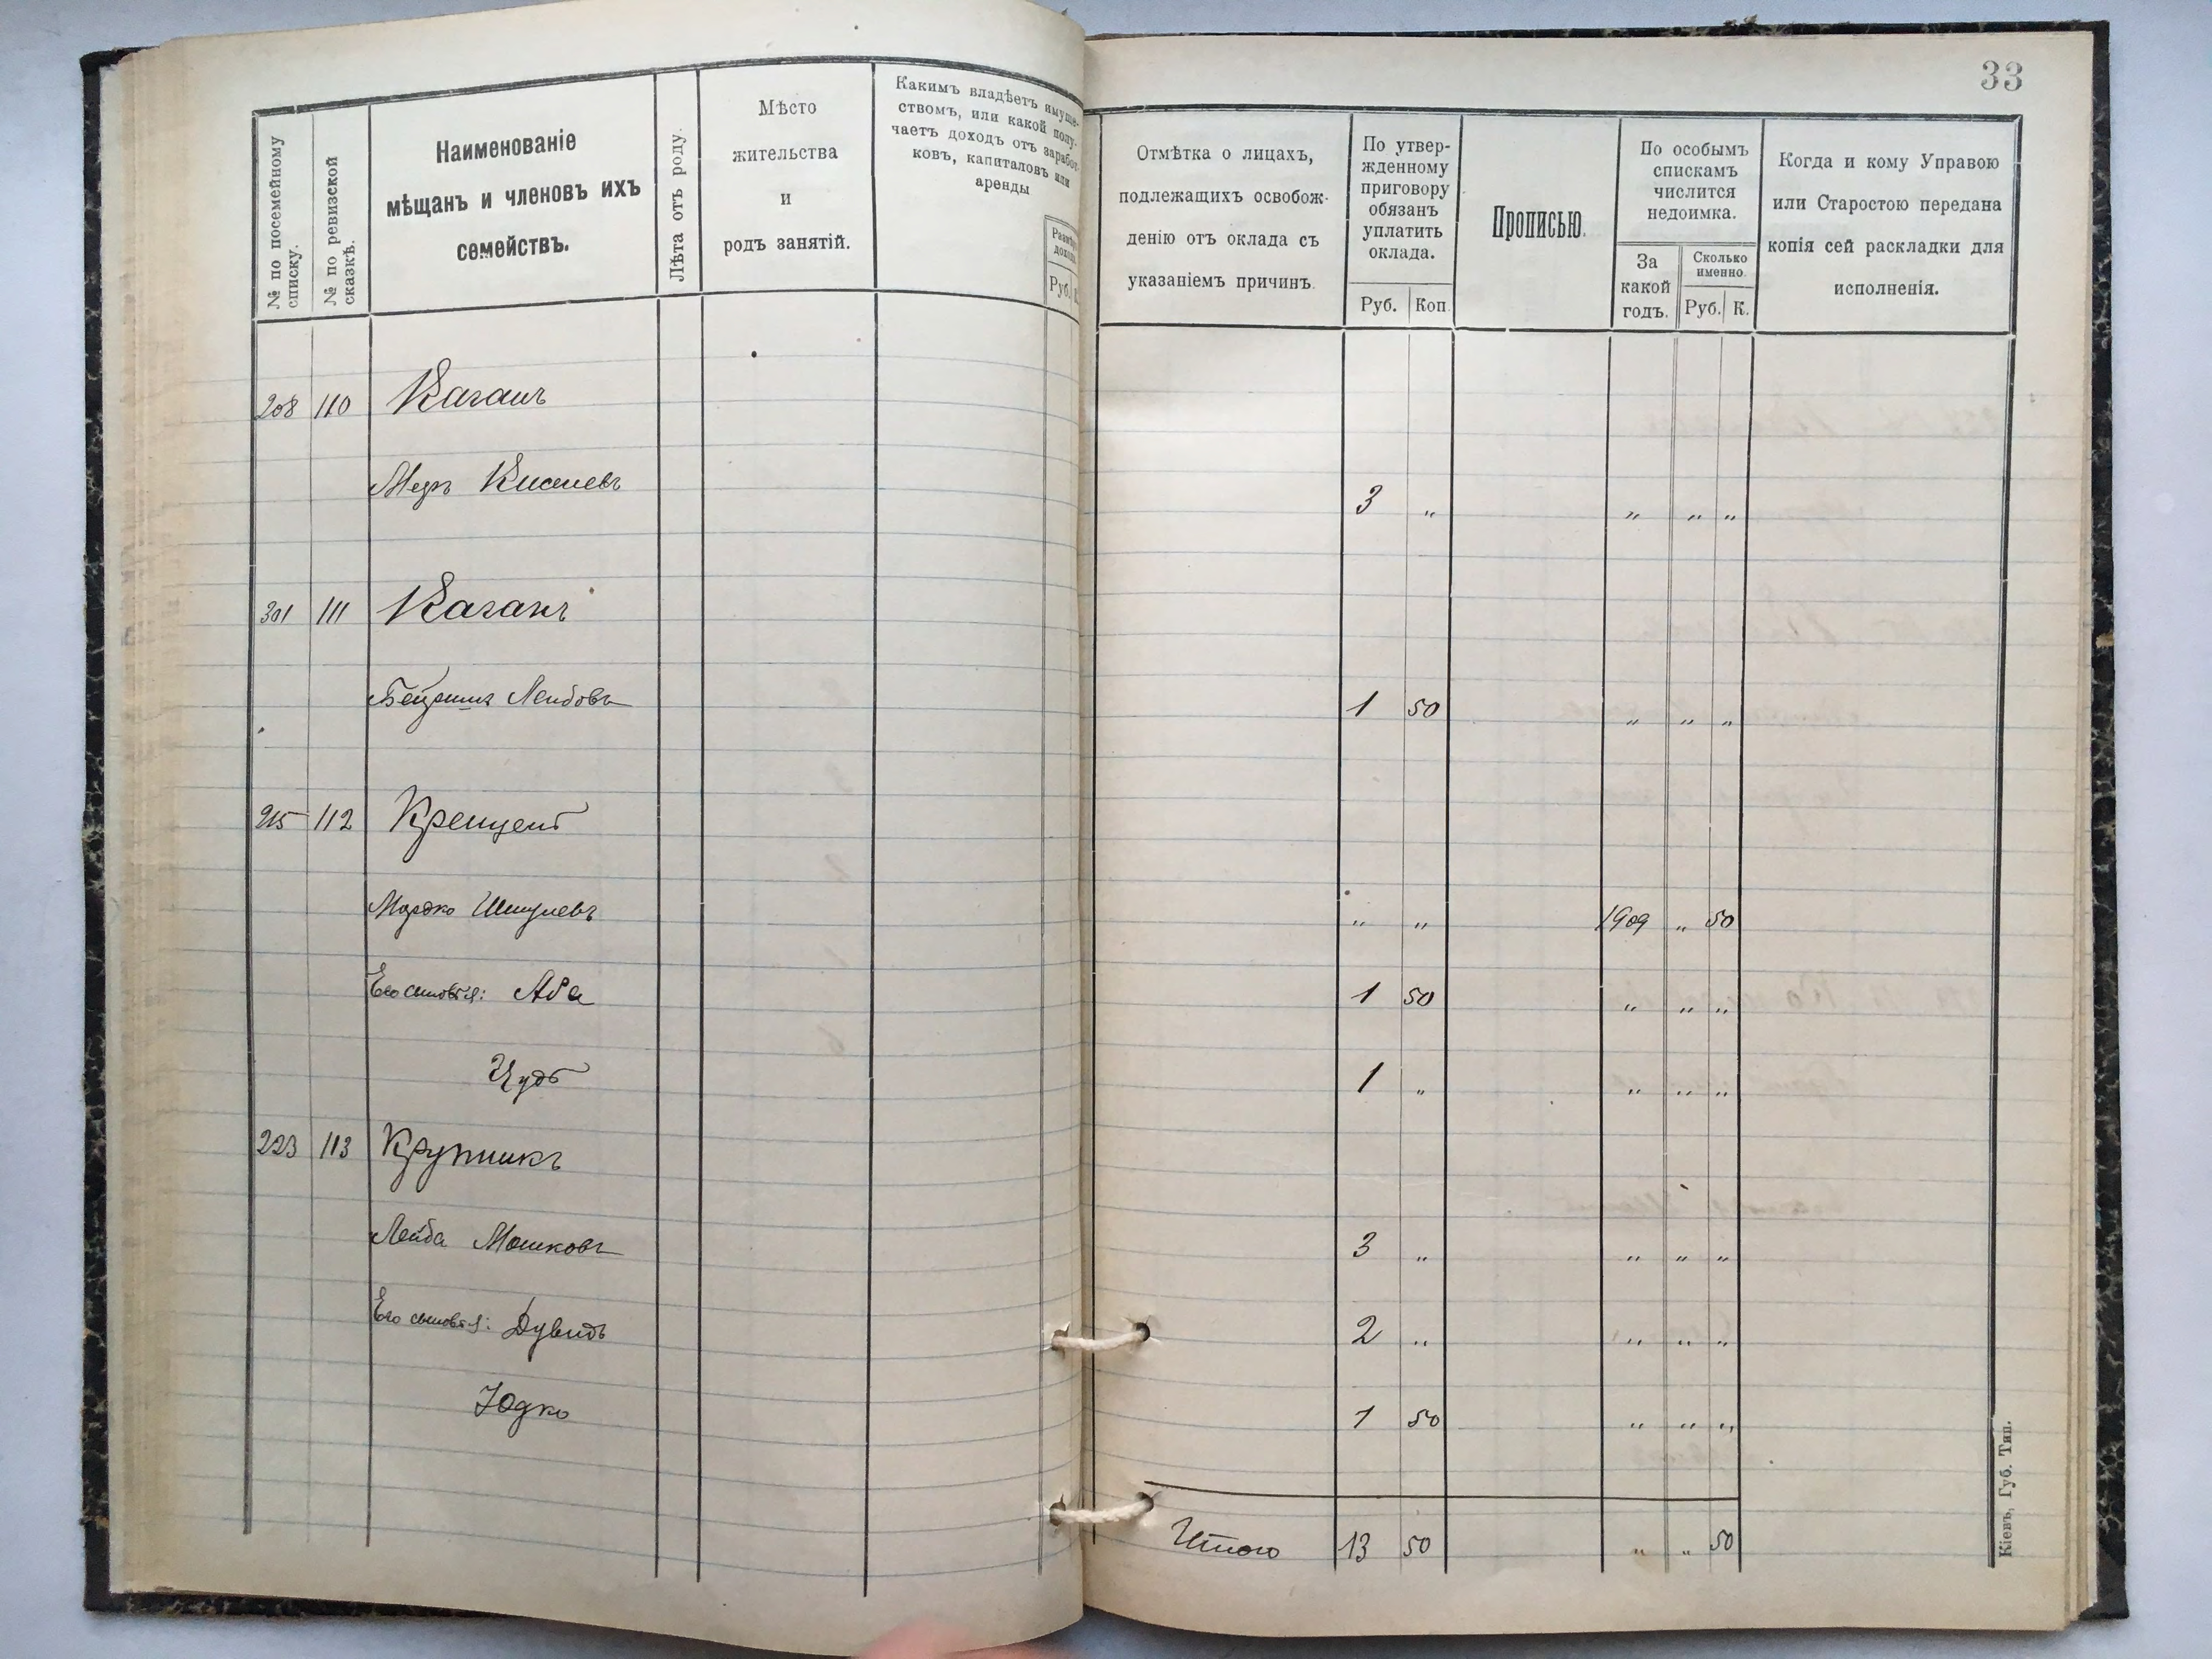 33
№ по посемейному
списку.
№ по ревизской
сказкѣ.
Наименованіе
мѣщанъ и членовъ ихъ
семействъ.
Лѣта отъ роду.
Мѣсто
жительства
и
родъ занятій.
Какимъ владѣетъ имуще-
ствомъ, или какой полу-
чаетъ доходъ отъ заработ-
ковъ, капиталовъ или
аренды
Размѣръ
дохода.
Руб. К.
Отмѣтка о лицахъ,
подлежащихъ освобож-
денію отъ оклада съ
указаніемъ причинъ.
По утвер-
жденному
приговору
обязанъ
уплатить
оклада.
Руб. Коп.
Прописью.
По особымъ
спискамъ
числится
недоимка.
За
какой
годъ.
Сколько
именно.
Руб. К.
Когда и кому Управою
или Старостою передана
копія сей раскладки для
исполненія.
208 110 Каганъ
Меръ Киселевъ 3 " " " "
301 111 Каганъ
Лейбовъ 1 50 " " "
215 112
Мордко Шмулевъ " " 1909 " 50
Его сыновья: Аба 1 50 " " "
1 " " " "
223 113 Крупникъ
Лейба Мошковъ 3 " " " "
Его сыновья: Дувидъ 2 " " " "
Юдко 1 50 " " "
Итого 13 50 " " 50
Кіевъ, Губ. Тип.